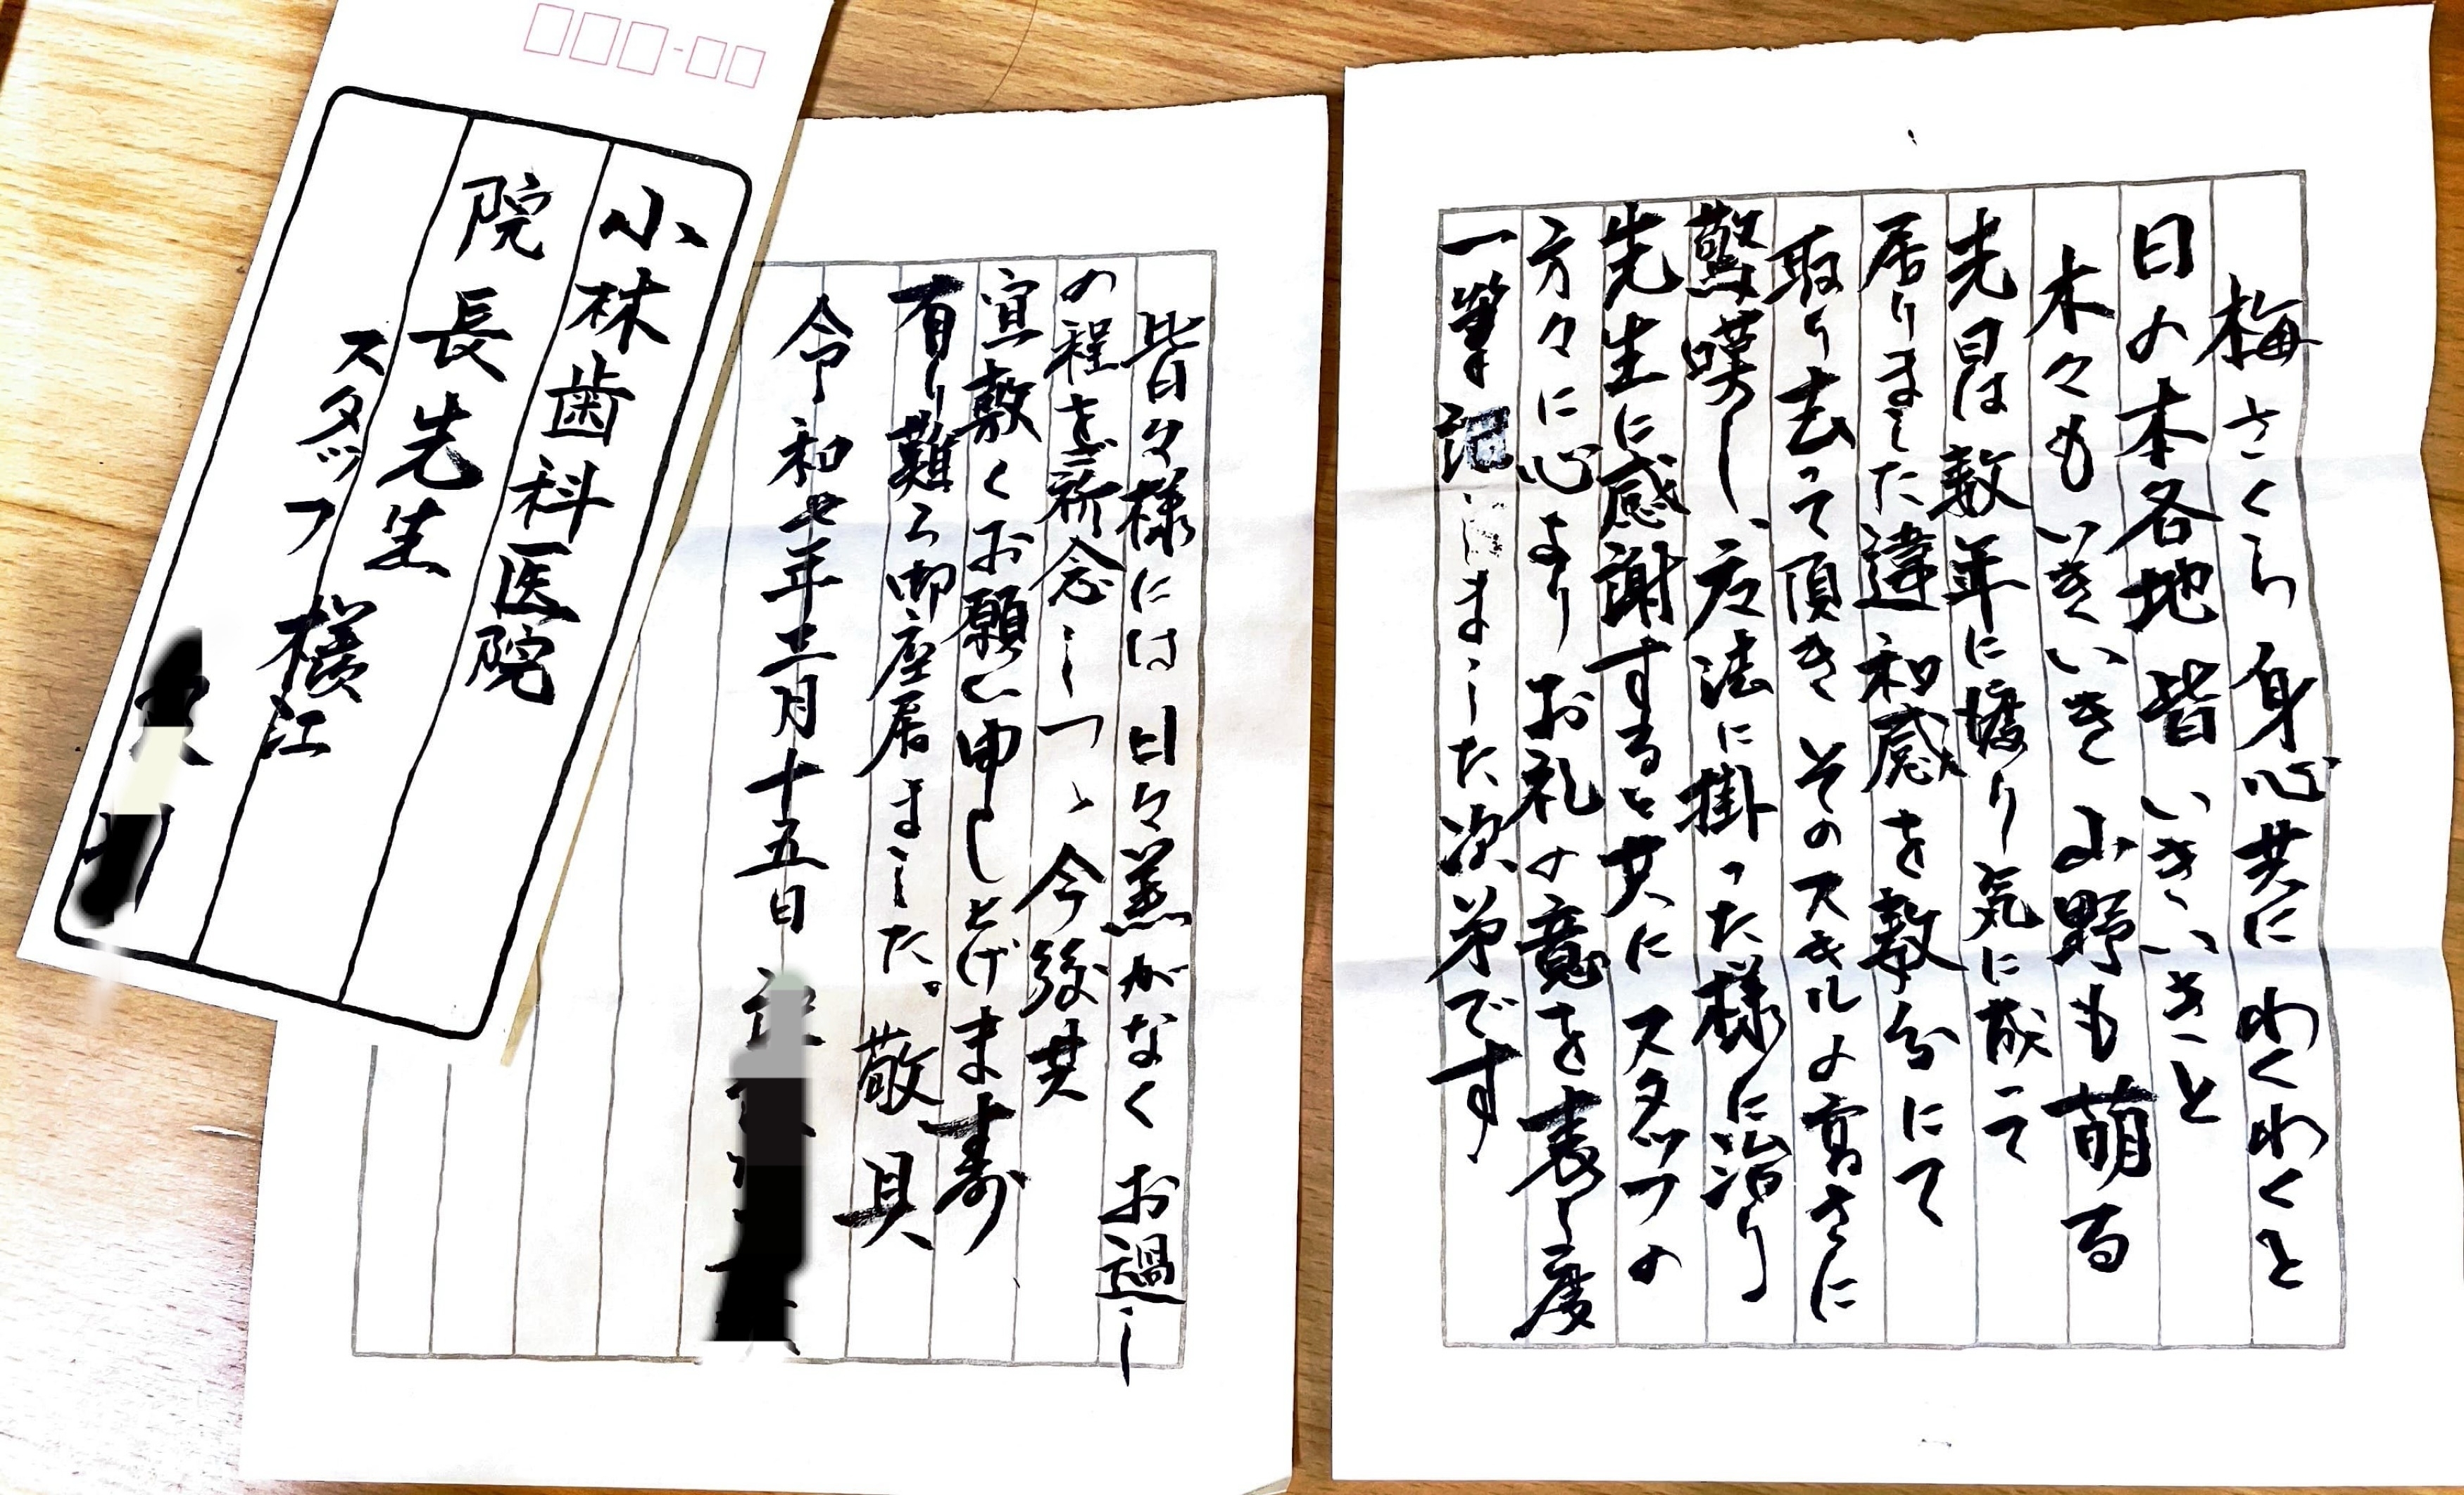 小林歯科医院
院長先生
スタッフ 様江
梅さくら 身心共に わくわくと
日の本各地 皆 いきいきと
木々も いきいき 山野も 萌る
先日は 数年に渡り気に成って
居りました違和感を数分にて
取り去って頂き そのスキルの高さに
驚嘆し、応法に掛った様に治り
先生に感謝すると共に スタッフの
方々に心より お礼の意を表し度
一筆記しました次第です
皆々様には 日々恙がなく お過し
の程を祈念しつゝ 今後共
宜敷くお願い申し上げます
有り難う御座居ました。 敬具
令和七年三月十五日